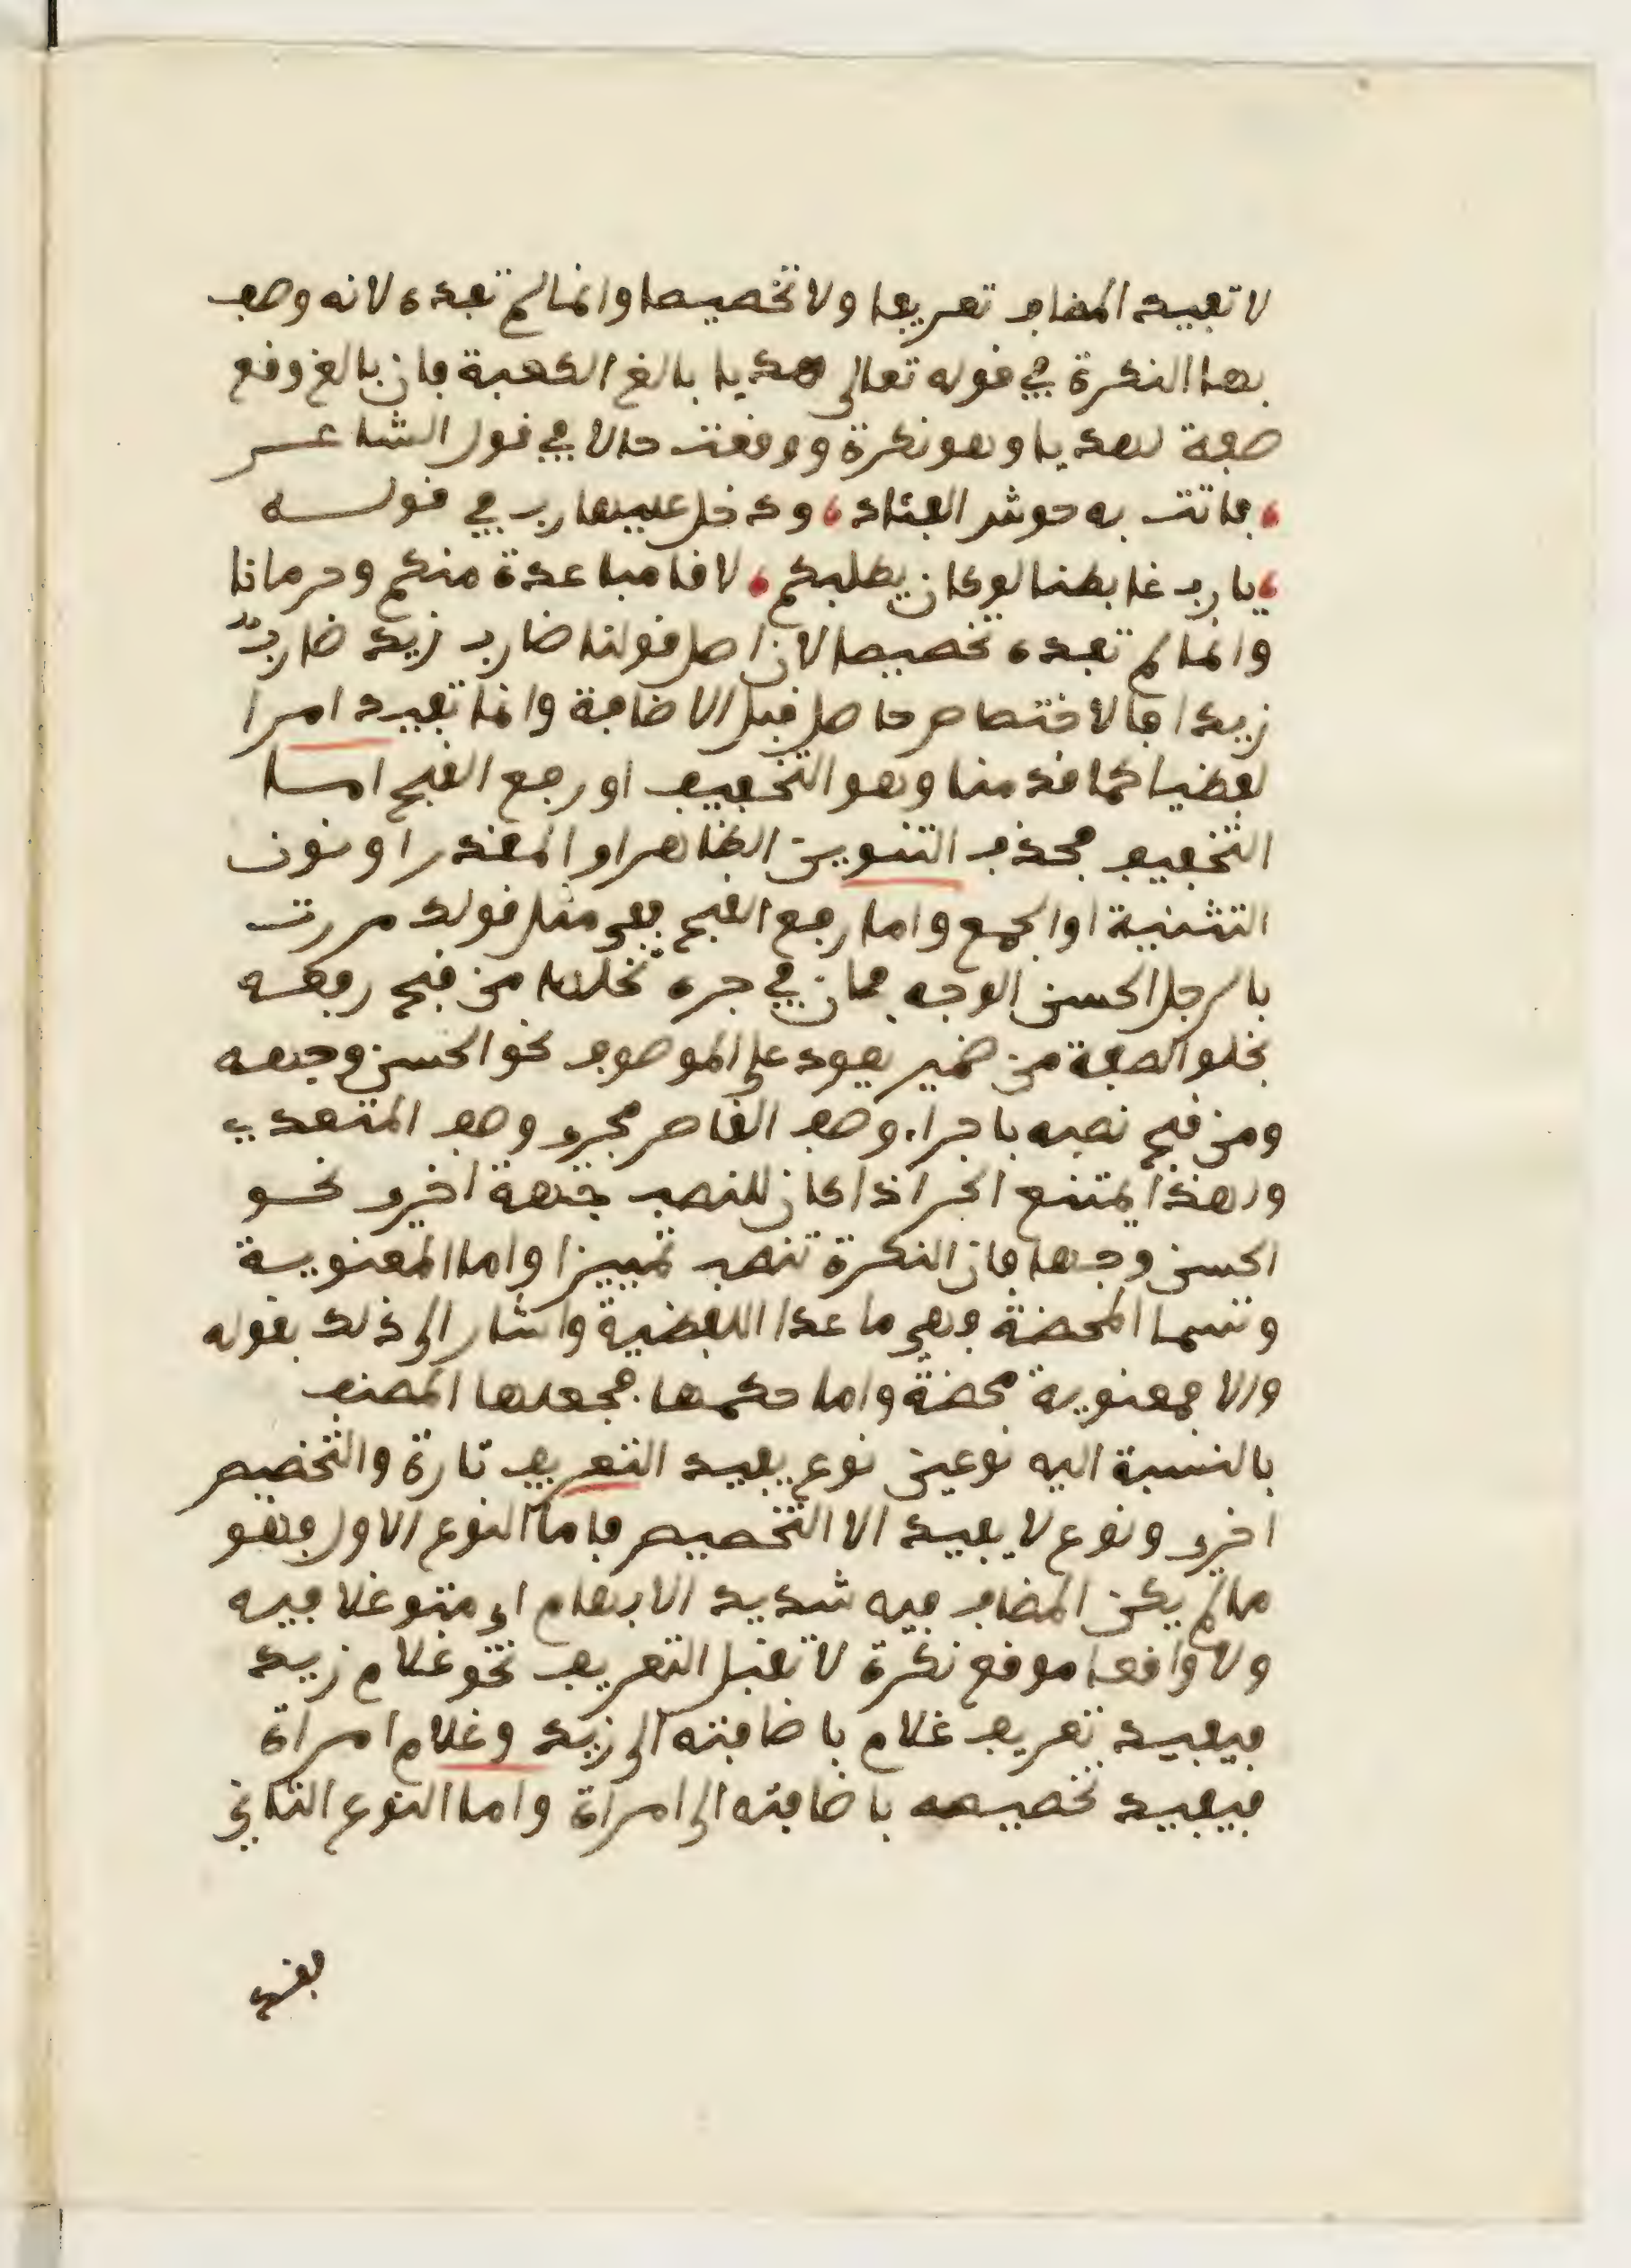 لا تفيد المضاف تعريفا ولا تخصيصا وانما لم تفده لانه وصف
بها النكرة في قوله تعالى هديا بالغ الكعبة فان بالغ وقع
صفة لهديا وهو نكرة ووقعت حالا في قول الشاعر
فاتت به حوش الفؤاد ودخل عليها رب في قوله
يا رب غابطنا لو كان يطلبكم لاقا مباعدة منكم وحرمانا
وانما لم تفده تخصيصا لان اصل قولنا ضارب زيد ضارب
زيدا فالاختصاص حاصل قبل الاضافة وانما تفيد امرا
لفظيا كما قدمنا وهو التخفيف او رفع القبح اما
التخفيف فحذف التنوين الظاهر او المقدر او نون
التثنية او الجمع واما رفع القبح ففي مثل قولك مررت
بالرجل الحسن الوجه فان في جره تخلصا من قبح رفعه
بخلو الصفة من ضمير يعود على الموصوف نحو الحسن وجهه
ومن قبح نصبه باجراء وصف القاصر مجرى وصف المتعدي
ولهذا يمتنع الجر اذا كان للنصب جهة اخرى نحو
الحسن وجها فان النكرة تنصب تمييزا واما المعنوية
وتسما المحضة وهي ما عدا اللفظية واشار الى ذلك بقوله
والا فمعنوية محضة واما حكمها فجعلها المصنف
بالنسبة اليه نوعين نوع يفيد التعريف تارة والتخصيص
اخرى ونوع لا يفيد الا التخصيص فاما النوع الاول فهو
ما لم يكن المضاف فيه شديد الابهام اي متوغلا فيه
ولا واقعا موقع نكرة لا تقبل التعريف نحو غلام زيد
فيفيد تعريف غلام باضافته الى زيد وغلام امراة
فيفيد تخصيصه باضافته الى امراة واما النوع الثاني